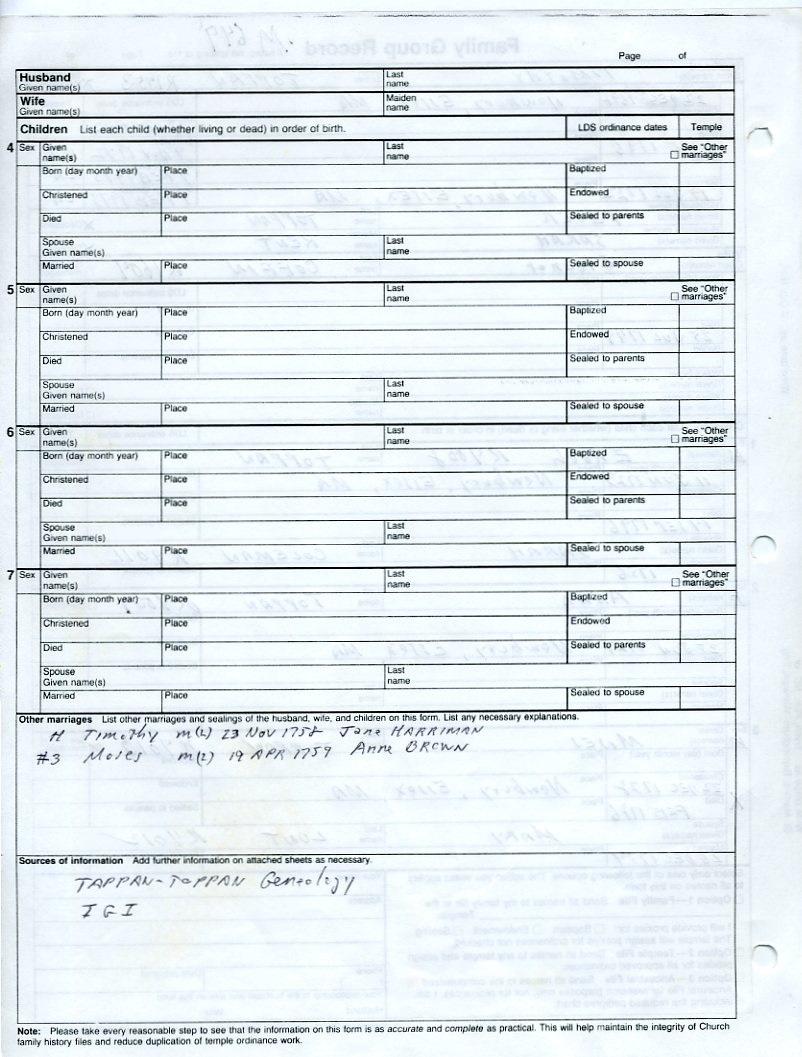 Page of
Husband
Given name(s) Last name
Wife
Given name(s) Maiden name
Children List each child (whether living or dead) in order of birth. LDS ordinance dates Temple
4 Sex Given name(s) Last name See "Other marriages"
Born (day month year) Place Baptized
Christened Place Endowed
Died Place Sealed to parents
Spouse Given name(s) Last name
Married Place Sealed to spouse
5 Sex Given name(s) Last name See "Other marriages"
Born (day month year) Place Baptized
Christened Place Endowed
Died Place Sealed to parents
Spouse Given name(s) Last name
Married Place Sealed to spouse
6 Sex Given name(s) Last name See "Other marriages"
Born (day month year) Place Baptized
Christened Place Endowed
Died Place Sealed to parents
Spouse Given name(s) Last name
Married Place Sealed to spouse
7 Sex Given name(s) Last name See "Other marriages"
Born (day month year) Place Baptized
Christened Place Endowed
Died Place Sealed to parents
Spouse Given name(s) Last name
Married Place Sealed to spouse
Other marriages List other marriages and sealings of the husband, wife, and children on this form. List any necessary explanations.
H Timothy m(2) 23 NOV 1758 Jane HARRIMAN
#3 Moses m(2) 19 APR 1759 Anne BROWN
Sources of information Add further information on attached sheets as necessary.
TAPPAN-TOPPAN Geneology
IGI
Note: Please take every reasonable step to see that the information on this form is as accurate and complete as practical. This will help maintain the integrity of Church
family history files and reduce duplication of temple ordinance work.